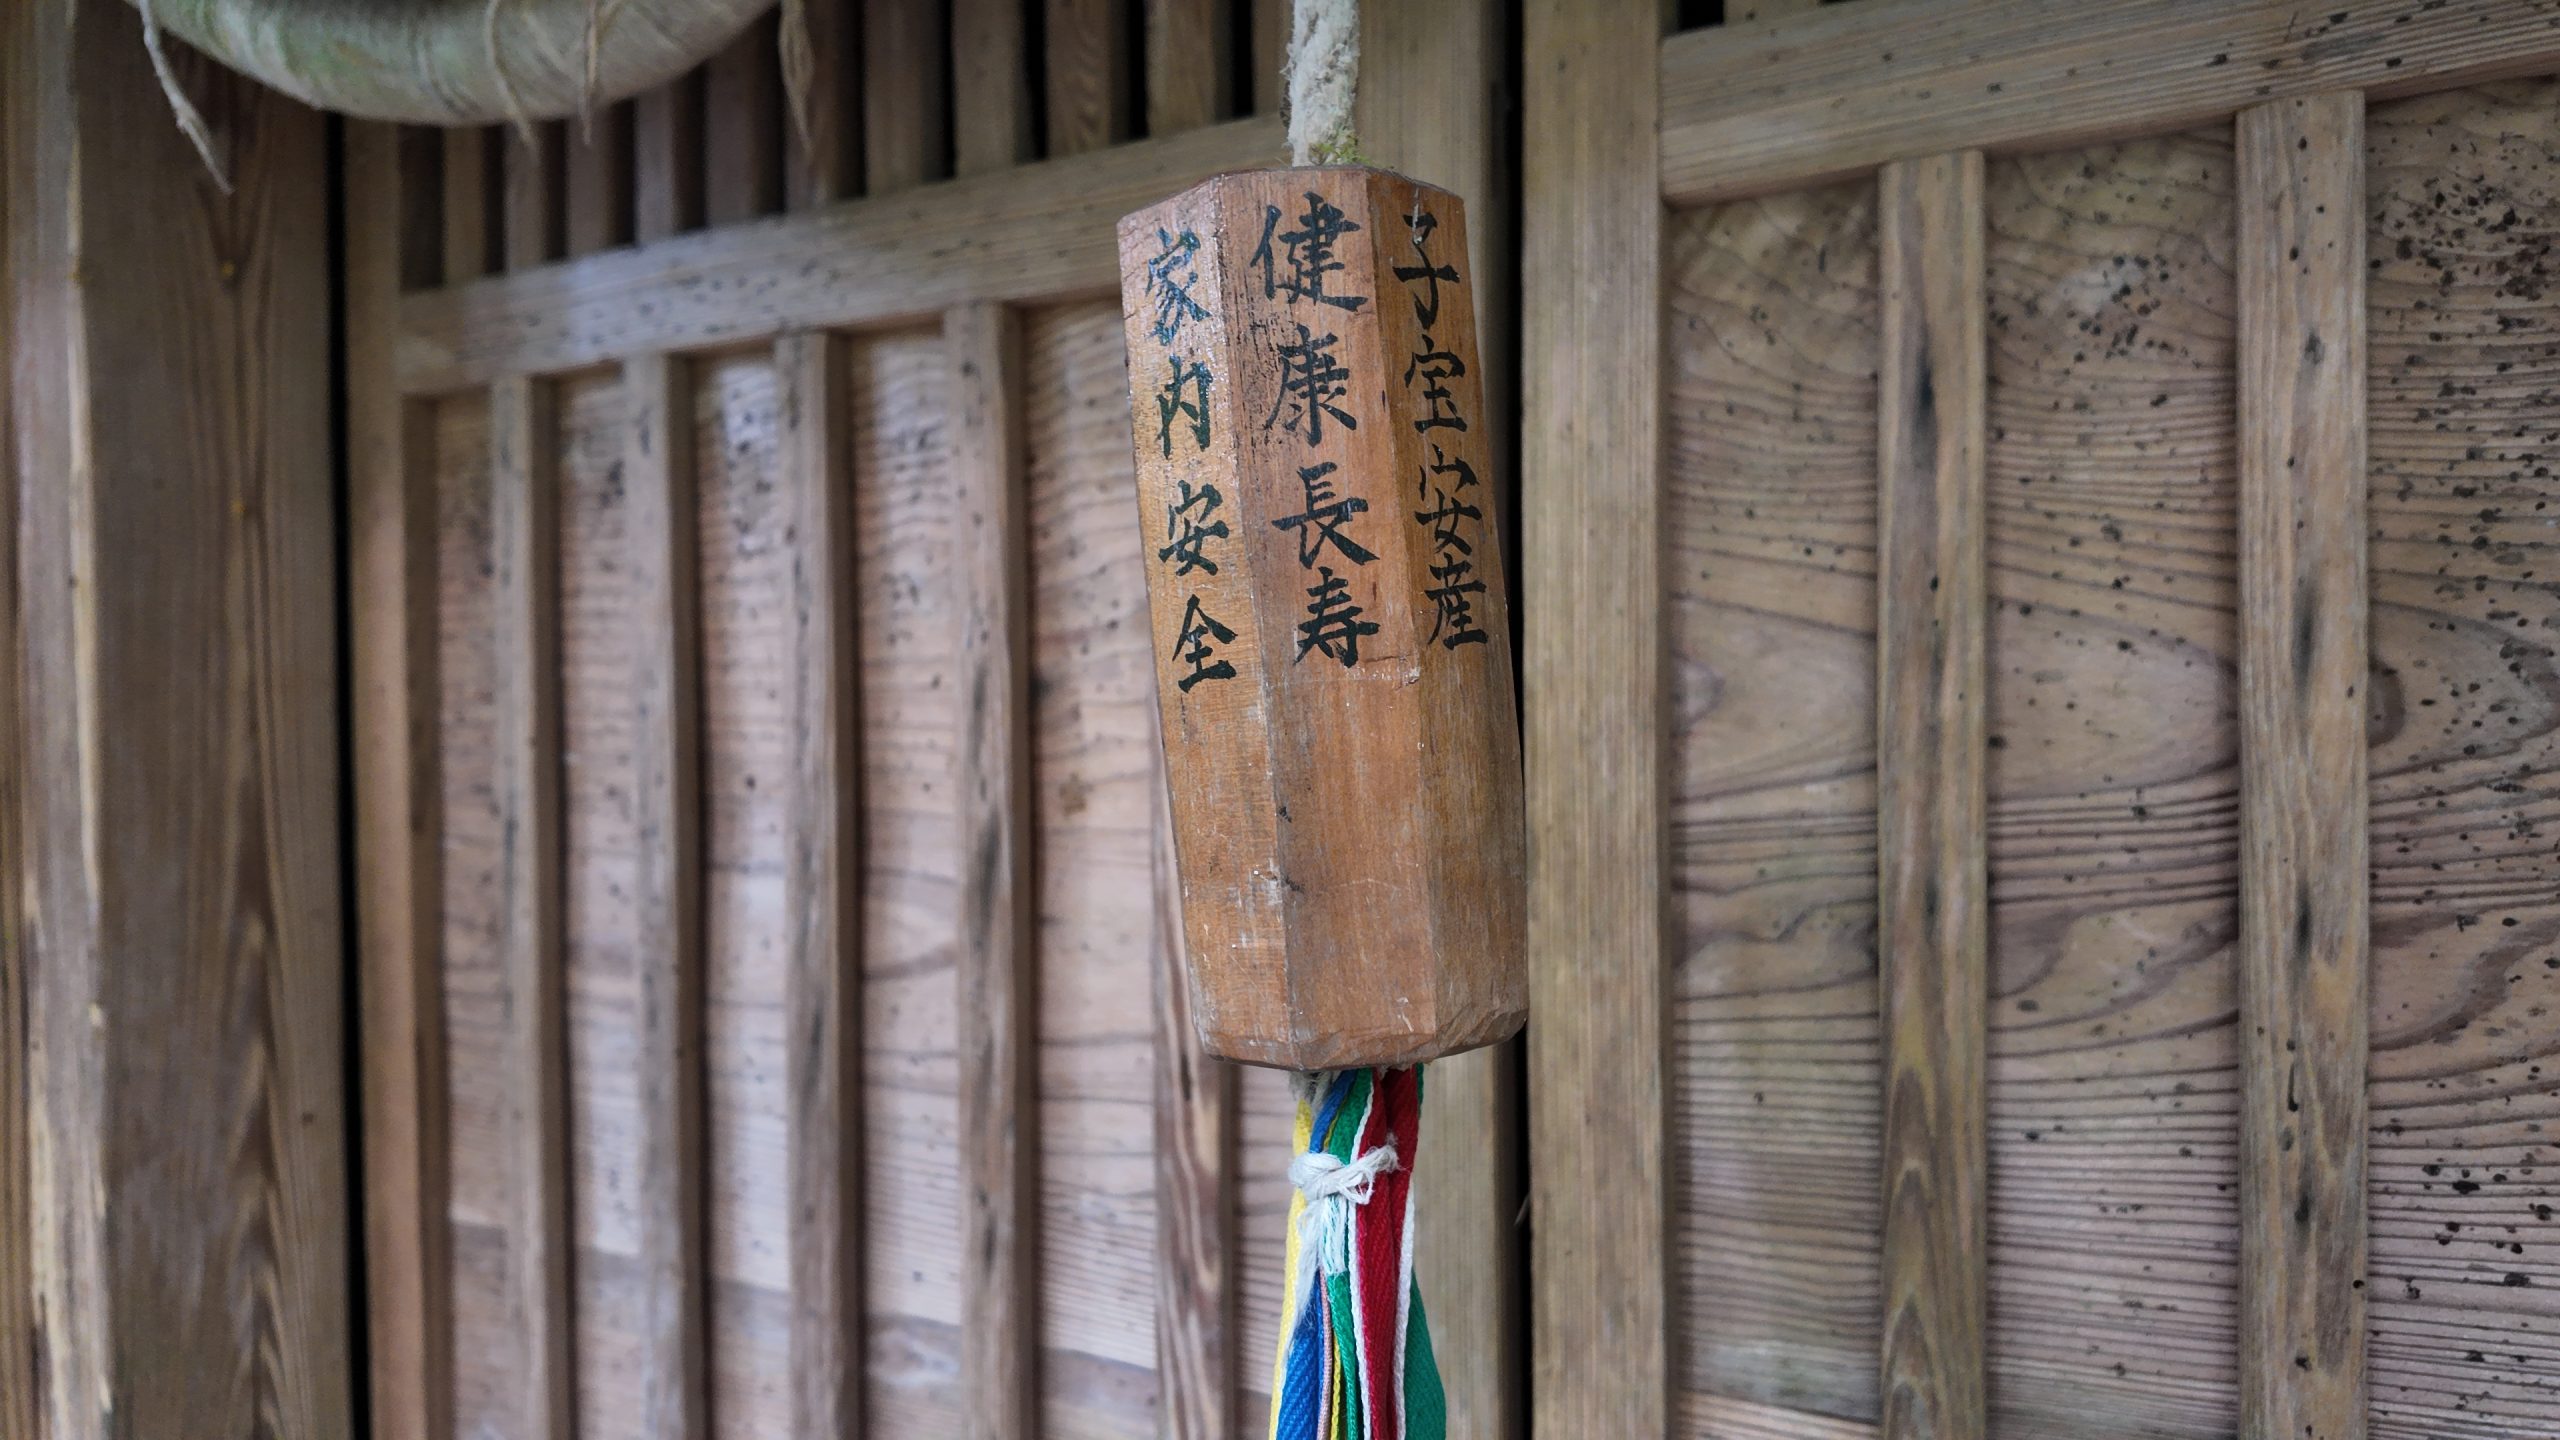 子宝安産
健康長寿
家内安全